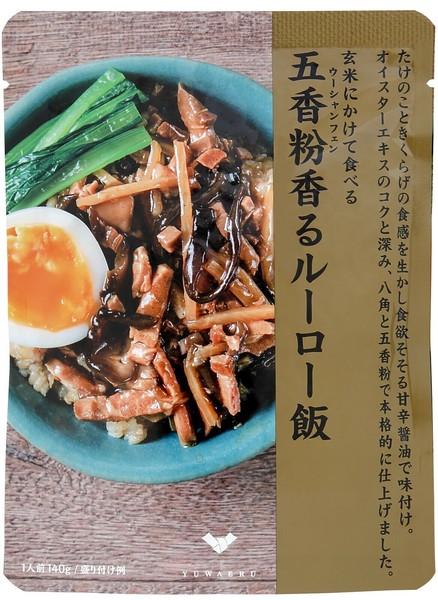 たけのこときくらげの食感を生かし食欲そそる甘辛醤油で味付け。
オイスターエキスのコクと深み、八角と五香粉で本格的に仕上げました。
玄米にかけて食べる
ウーシャンフェン
五香粉香るルーロー飯
1人前140g / 盛り付け例
YUWAERU